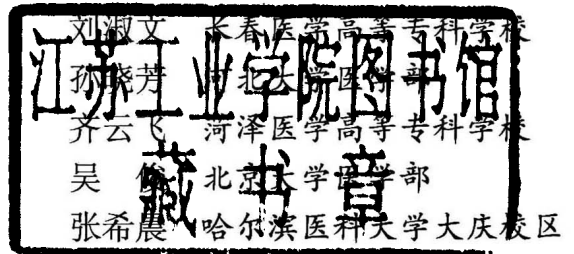 刘淑文 长春医学高等专科学校
孙晓芳 河北大学医学部
齐云飞 菏泽医学高等专科学校
吴 俊 北京大学医学部
张希晨 哈尔滨医科大学大庆校区
江苏工业学院图书馆
藏书章